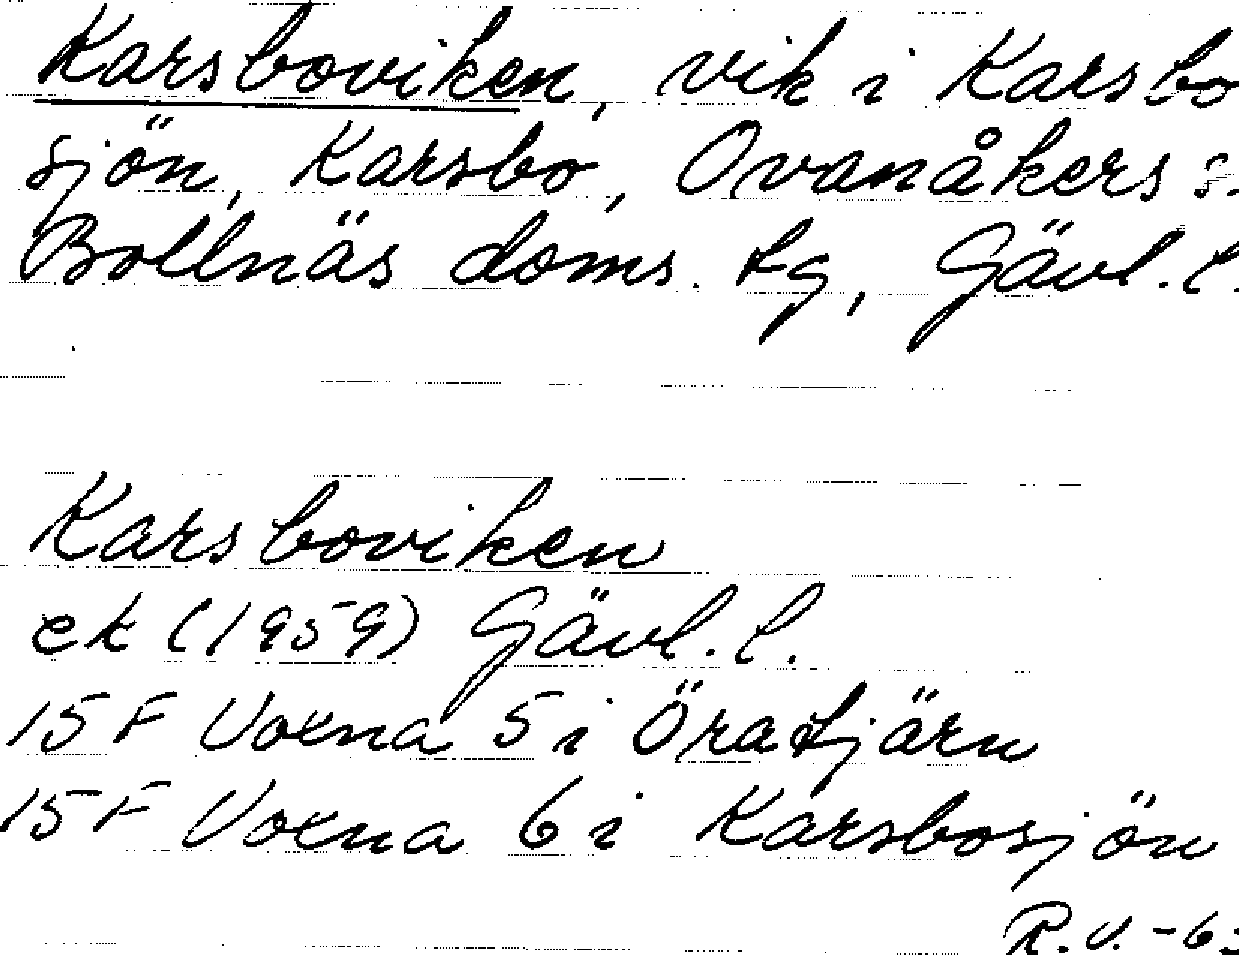 Karsboviken, vik i Karsbo
sjön, Karsbo, Ovanåkers s:n
Bollnäs doms. tg, Gävl. l.
Karsboviken
ek (1959) Gävl. l.
15 F Voxna 5 i Öratjärn
15 F Voxna 6 i Karsbosjön
R.V. -63